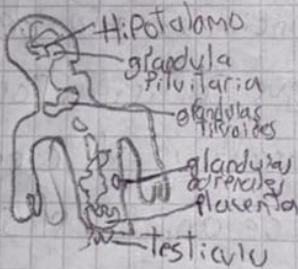 Hipotalomo
glandula
Pituitaria
glandulas
tirvoides
glandulas
adrenales
placenta
testiculu